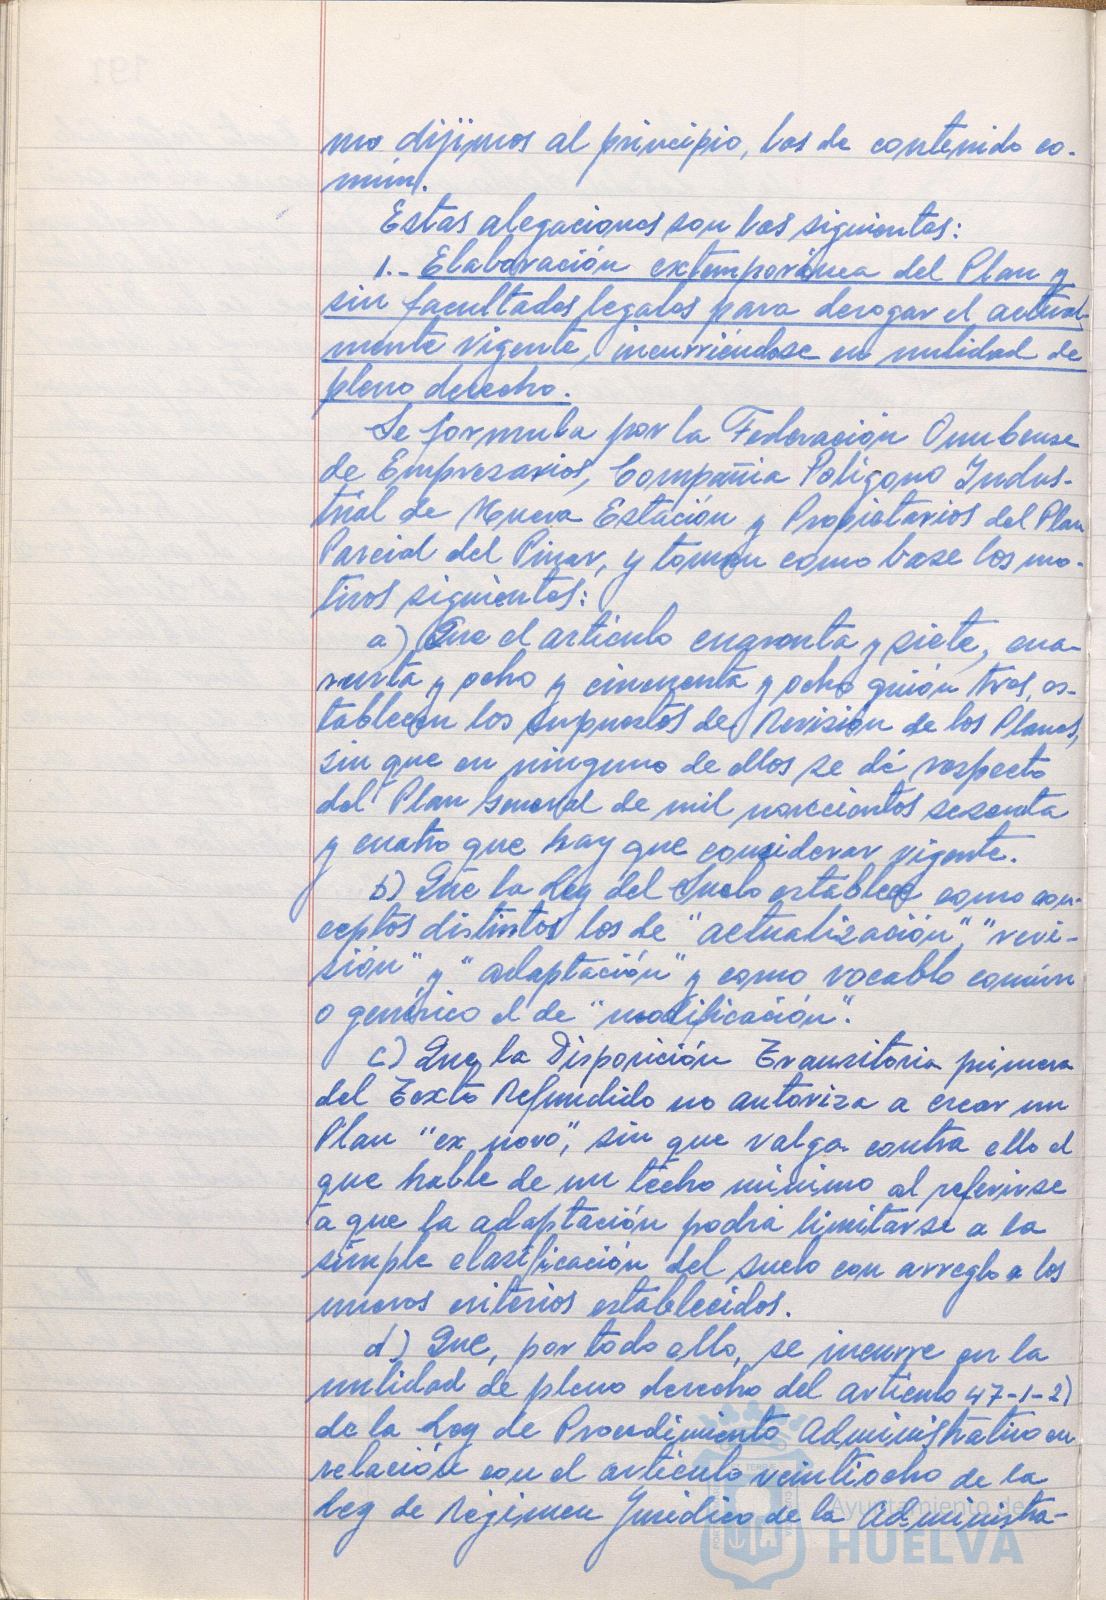 mo dijimos al principio, los de contenido co-
mún.
Estas alegaciones son las siguientes:
1.- Elaboración extemporánea del Plan y
sin facultades legales para derogar el actual-
mente vigente, incurriéndose en nulidad de
pleno derecho.
Se formula por la Federación Onubense
de Empresarios, Compañia Polígono Indus-
trial de Nueva Estación y Propietarios del Plan
Parcial del Pinar, y toman como base los mo-
tivos siguientes:
a) Que el artículo cuarenta y siete, cua-
renta y ocho y cincuenta y ocho guión tres, es-
tablecen los supuestos de Revisión de los Planes,
sin que en ninguno de ellos se dé respecto
del Plan General de mil novecientos sesenta
y cuatro que hay que considerar vigente.
b) Que la Ley del Suelo establece como con-
ceptos distintos los de "actualización", "revi-
sión" y "adaptación" y como vocablo común
o genérico el de "modificación".
c) Que la Disposición Transitoria primera
del Texto Refundido no autoriza a crear un
Plan "ex novo", sin que valga contra ello el
que hable de un techo mínimo al referirse
a que la adaptación podrá limitarse a la
simple clasificación del suelo con arreglo a los
nuevos criterios establecidos.
d) Que, por todo ello, se incurre en la
nulidad de pleno derecho del artículo 47-1-2)
de la Ley de Procedimiento Administrativo en
relación con el artículo veintiocho de la
Ley de Régimen Jurídico de la Administra-
Ayuntamiento de
HUELVA